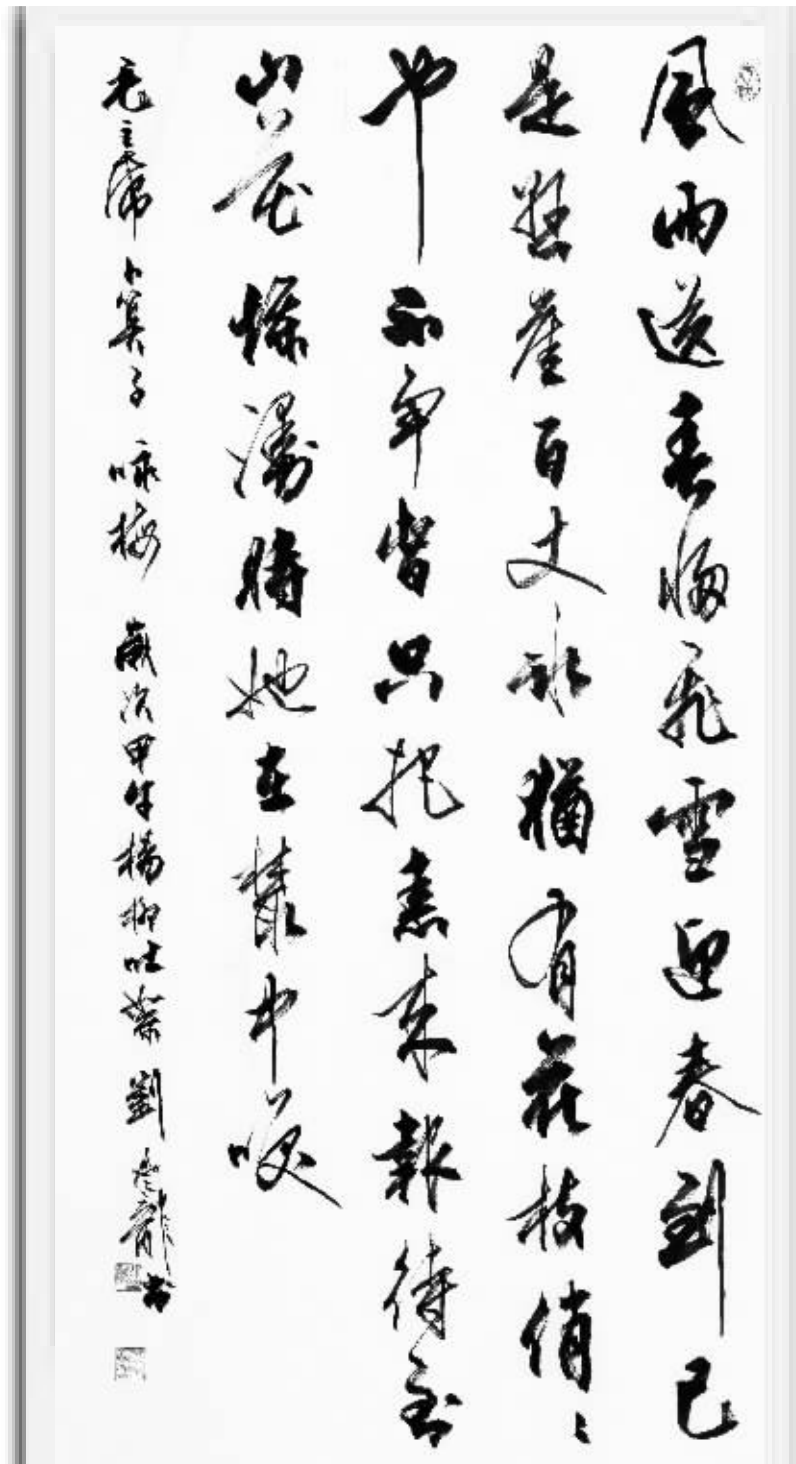 風雨送春歸飛雪迎春到已
是懸崖百丈冰猶有花枝俏〻
也不爭春只把春來報待到
山花爛漫時她在叢中咲
毛主席 卜算子 咏梅 歲次甲午楊柳吐絮 劉龍書